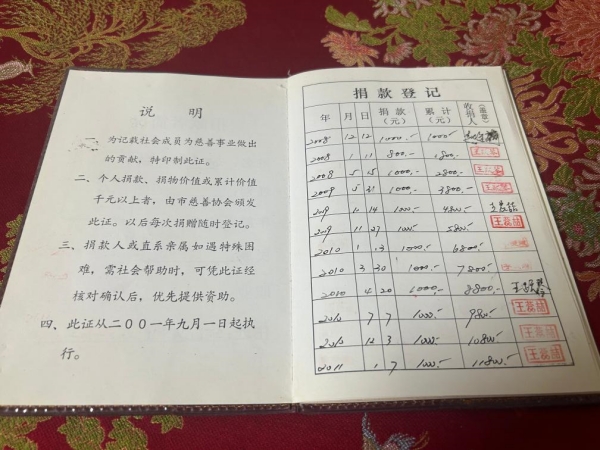 说 明
一、为记载社会成员为慈善事业做出
的贡献，特印制此证。
二、个人捐款、捐物价值或累计价值
千元以上者，由市慈善协会颁发
此证。以后每次捐赠随时登记。
三、捐款人或直系亲属如遇特殊困
难，需社会帮助时，可凭此证经
核对确认后，优先提供资助。
四、此证从二00一年九月一日起执
行。
捐款登记
年 月 日 捐款（元） 累计（元） 收捐人（盖章）
2008 12 12 1000.- 1000.-
2008 1 11 800.- 1800.-
2008 5 15 1000.- 2800.-
2009 5 31 1000.- 3800.-
2009 1 14 1000.- 4800.-
2009 11 27 1000.- 5800.-
2010 1 13 1000.- 6800.-
2010 3 30 1000.- 7800.-
2010 4 20 1000.- 8800.-
2010 7 7 1000.- 9800.-
2010 12 3 1000.- 10800.-
2011 1 7 1000.- 11800.-